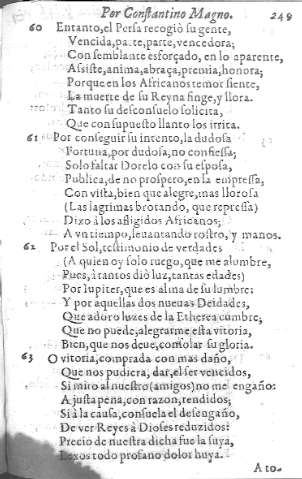 Por Constantino Magno. 249
60 Entanto, el Persa recogiò su gente,
Vencida, parte, parte, vencedora;
Con semblante esforçado, en lo aparente,
Assiste, anima, abraça, premia, honora;
Porque en los Africanos temor siente,
La muerte de su Reyna finge, y llora.
Tanto su desconsuelo solicita,
Que con supuesto llanto los irrita.
61 Por conseguir su intento, la dudosa
Fortuna, por dudosa, no confiessa;
Solo faltar Dorelo con su esposa,
Publica, de no prospero, en la empressa,
Con vista, bien que alegre, mas llorosa
(Las lagrimas brotando, que repressa)
Dixo à los afligidos Africanos;
A vn tiempo, leuantando rostro, y manos.
62 Por el Sol, testimonio de verdades
(A quien oy solo ruego, que me alumbre,
Pues, à tantos diò luz, tantas edades)
Por Iupiter, que es alma de su lumbre;
Y por aquellas dos nueuas Deidades,
Que adoro luzes de la Etherea cumbre;
Que no puede, alegrarme esta vitoria,
Bien, que nos deue, consolar su gloria.
63 O vitoria, comprada con mas daño,
Que nos pudiera, dar, el ser vencidos,
Si miro al nuestro (amigos) no me engaño:
A justa pena, con razon, rendidos;
Si à la causa, consuela el desengaño,
De ver Reyes à Dioses reduzidos:
Precio de nuestra dicha fue la suya,
Lexos todo profano dolor huya.
A to-